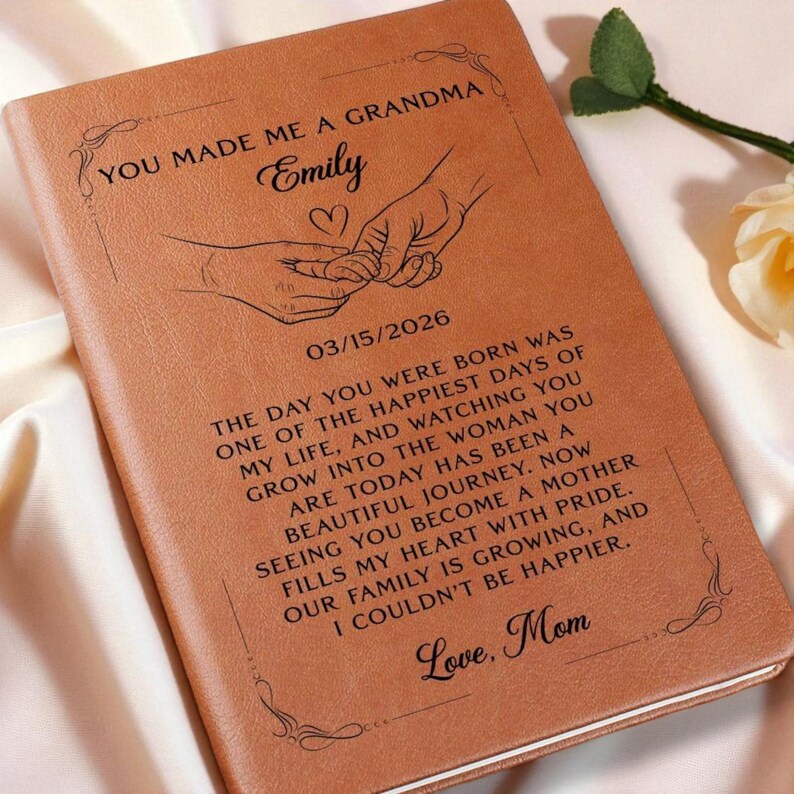 YOU MADE ME A GRANDMA
Emily
03/15/2026
THE DAY YOU WERE BORN WAS
ONE OF THE HAPPIEST DAYS OF
MY LIFE, AND WATCHING YOU
GROW INTO THE WOMAN YOU
ARE TODAY HAS BEEN A
BEAUTIFUL JOURNEY. NOW
SEEING YOU BECOME A MOTHER
FILLS MY HEART WITH PRIDE.
OUR FAMILY IS GROWING, AND
I COULDN'T BE HAPPIER.
Love, Mom